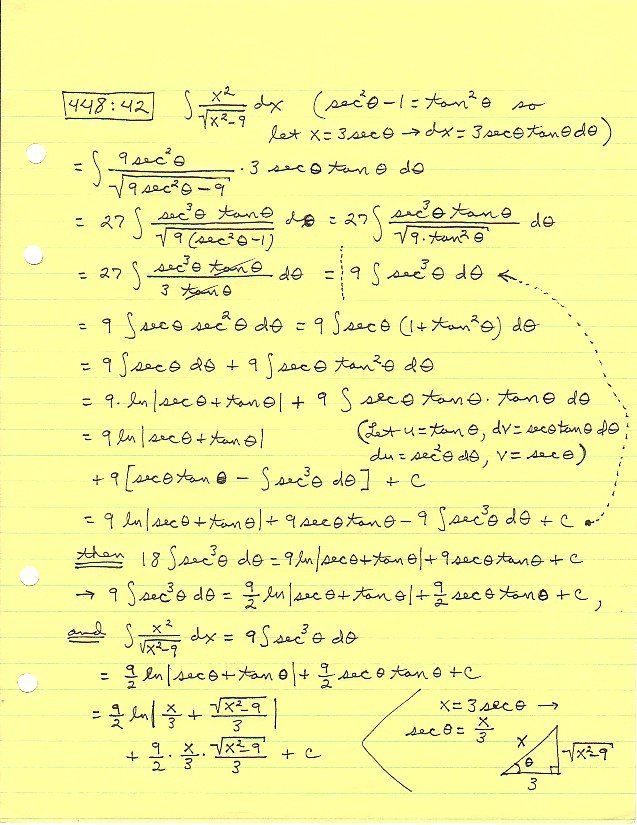 448:42 ∫ x²/√(x²-9) dx (sec²θ-1 = tan²θ so
let x = 3secθ → dx = 3secθtanθdθ)
= ∫ 9sec²θ/√(9sec²θ-9) · 3 secθ tanθ dθ
= 27 ∫ sec³θ tanθ/√(9(sec²θ-1)) dθ = 27 ∫ sec³θ tanθ/√(9·tan²θ) dθ
= 27 ∫ sec³θ tanθ/(3 tanθ) dθ = 9 ∫ sec³θ dθ
= 9 ∫ secθ sec²θ dθ = 9 ∫ secθ (1+tan²θ) dθ
= 9 ∫ secθ dθ + 9 ∫ secθ tan²θ dθ
= 9·ln|secθ+tanθ| + 9 ∫ secθ tanθ·tanθ dθ
= 9 ln|secθ+tanθ| (Let u=tanθ, dv=secθtanθdθ
du = sec²θdθ, v = secθ)
+ 9[secθtanθ - ∫sec³θ dθ] + C
= 9 ln|secθ+tanθ| + 9secθtanθ - 9 ∫sec³θ dθ + C
then 18 ∫sec³θ dθ = 9ln|secθ+tanθ| + 9secθtanθ + C
→ 9 ∫sec³θ dθ = 9/2 ln|secθ+tanθ| + 9/2 secθ tanθ + C,
and ∫ x²/√(x²-9) dx = 9∫sec³θ dθ
= 9/2 ln|secθ+tanθ| + 9/2 secθ tanθ + C
= 9/2 ln| x/3 + √(x²-9)/3 |
+ 9/2 · x/3 · √(x²-9)/3 + C
x = 3secθ →
secθ = x/3
x
√(x²-9)
θ
3